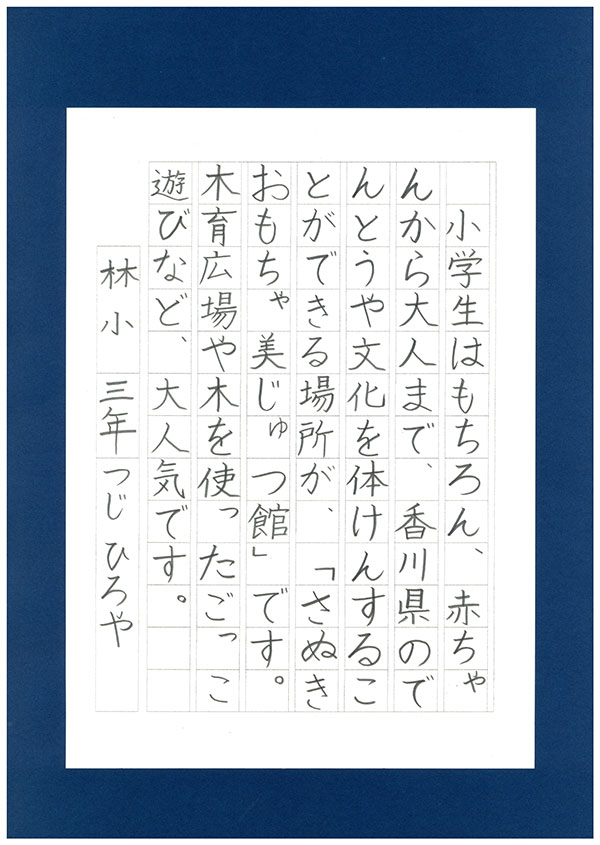 小学生はもちろん、赤ちゃ
んから大人まで、香川県ので
んとうや文化を体けんするこ
とができる場所が、「さぬき
おもちゃ美じゅつ館」です。
木育広場や木を使ったごっこ
遊びなど、大人気です。
林小 三年 つじ ひろや